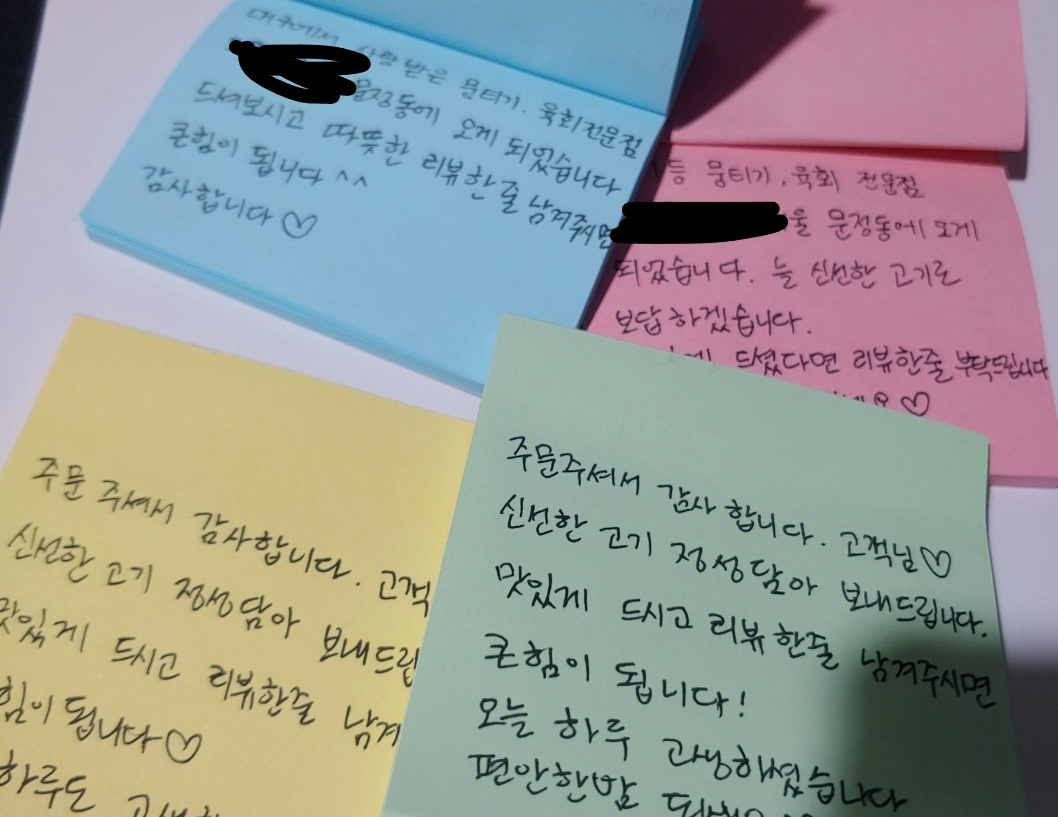 대구에서
사랑받은 뭉티기. 육회전문점
문정동에 오게 되었습니다
드셔보시고 따뜻한 리뷰한줄 남겨주시면
큰힘이 됩니다 ^^
감사합니다 ♡
등 뭉티기, 육회 전문점
문정동에 오게
되었습니다. 늘 신선한 고기로
보답하겠습니다.
드셨다면 리뷰한줄 부탁드립니다
♡
주문 주셔서 감사합니다. 고객
신선한 고기 정성담아 보내드립
맛있게 드시고 리뷰한줄 남겨
힘이 됩니다♡
하루도
주문주셔서 감사합니다. 고객님♡
신선한 고기 정성담아 보내드립니다.
맛있게 드시고 리뷰한줄 남겨주시면
큰힘이 됩니다!
오늘 하루 고생하셨습니다
편안한밤